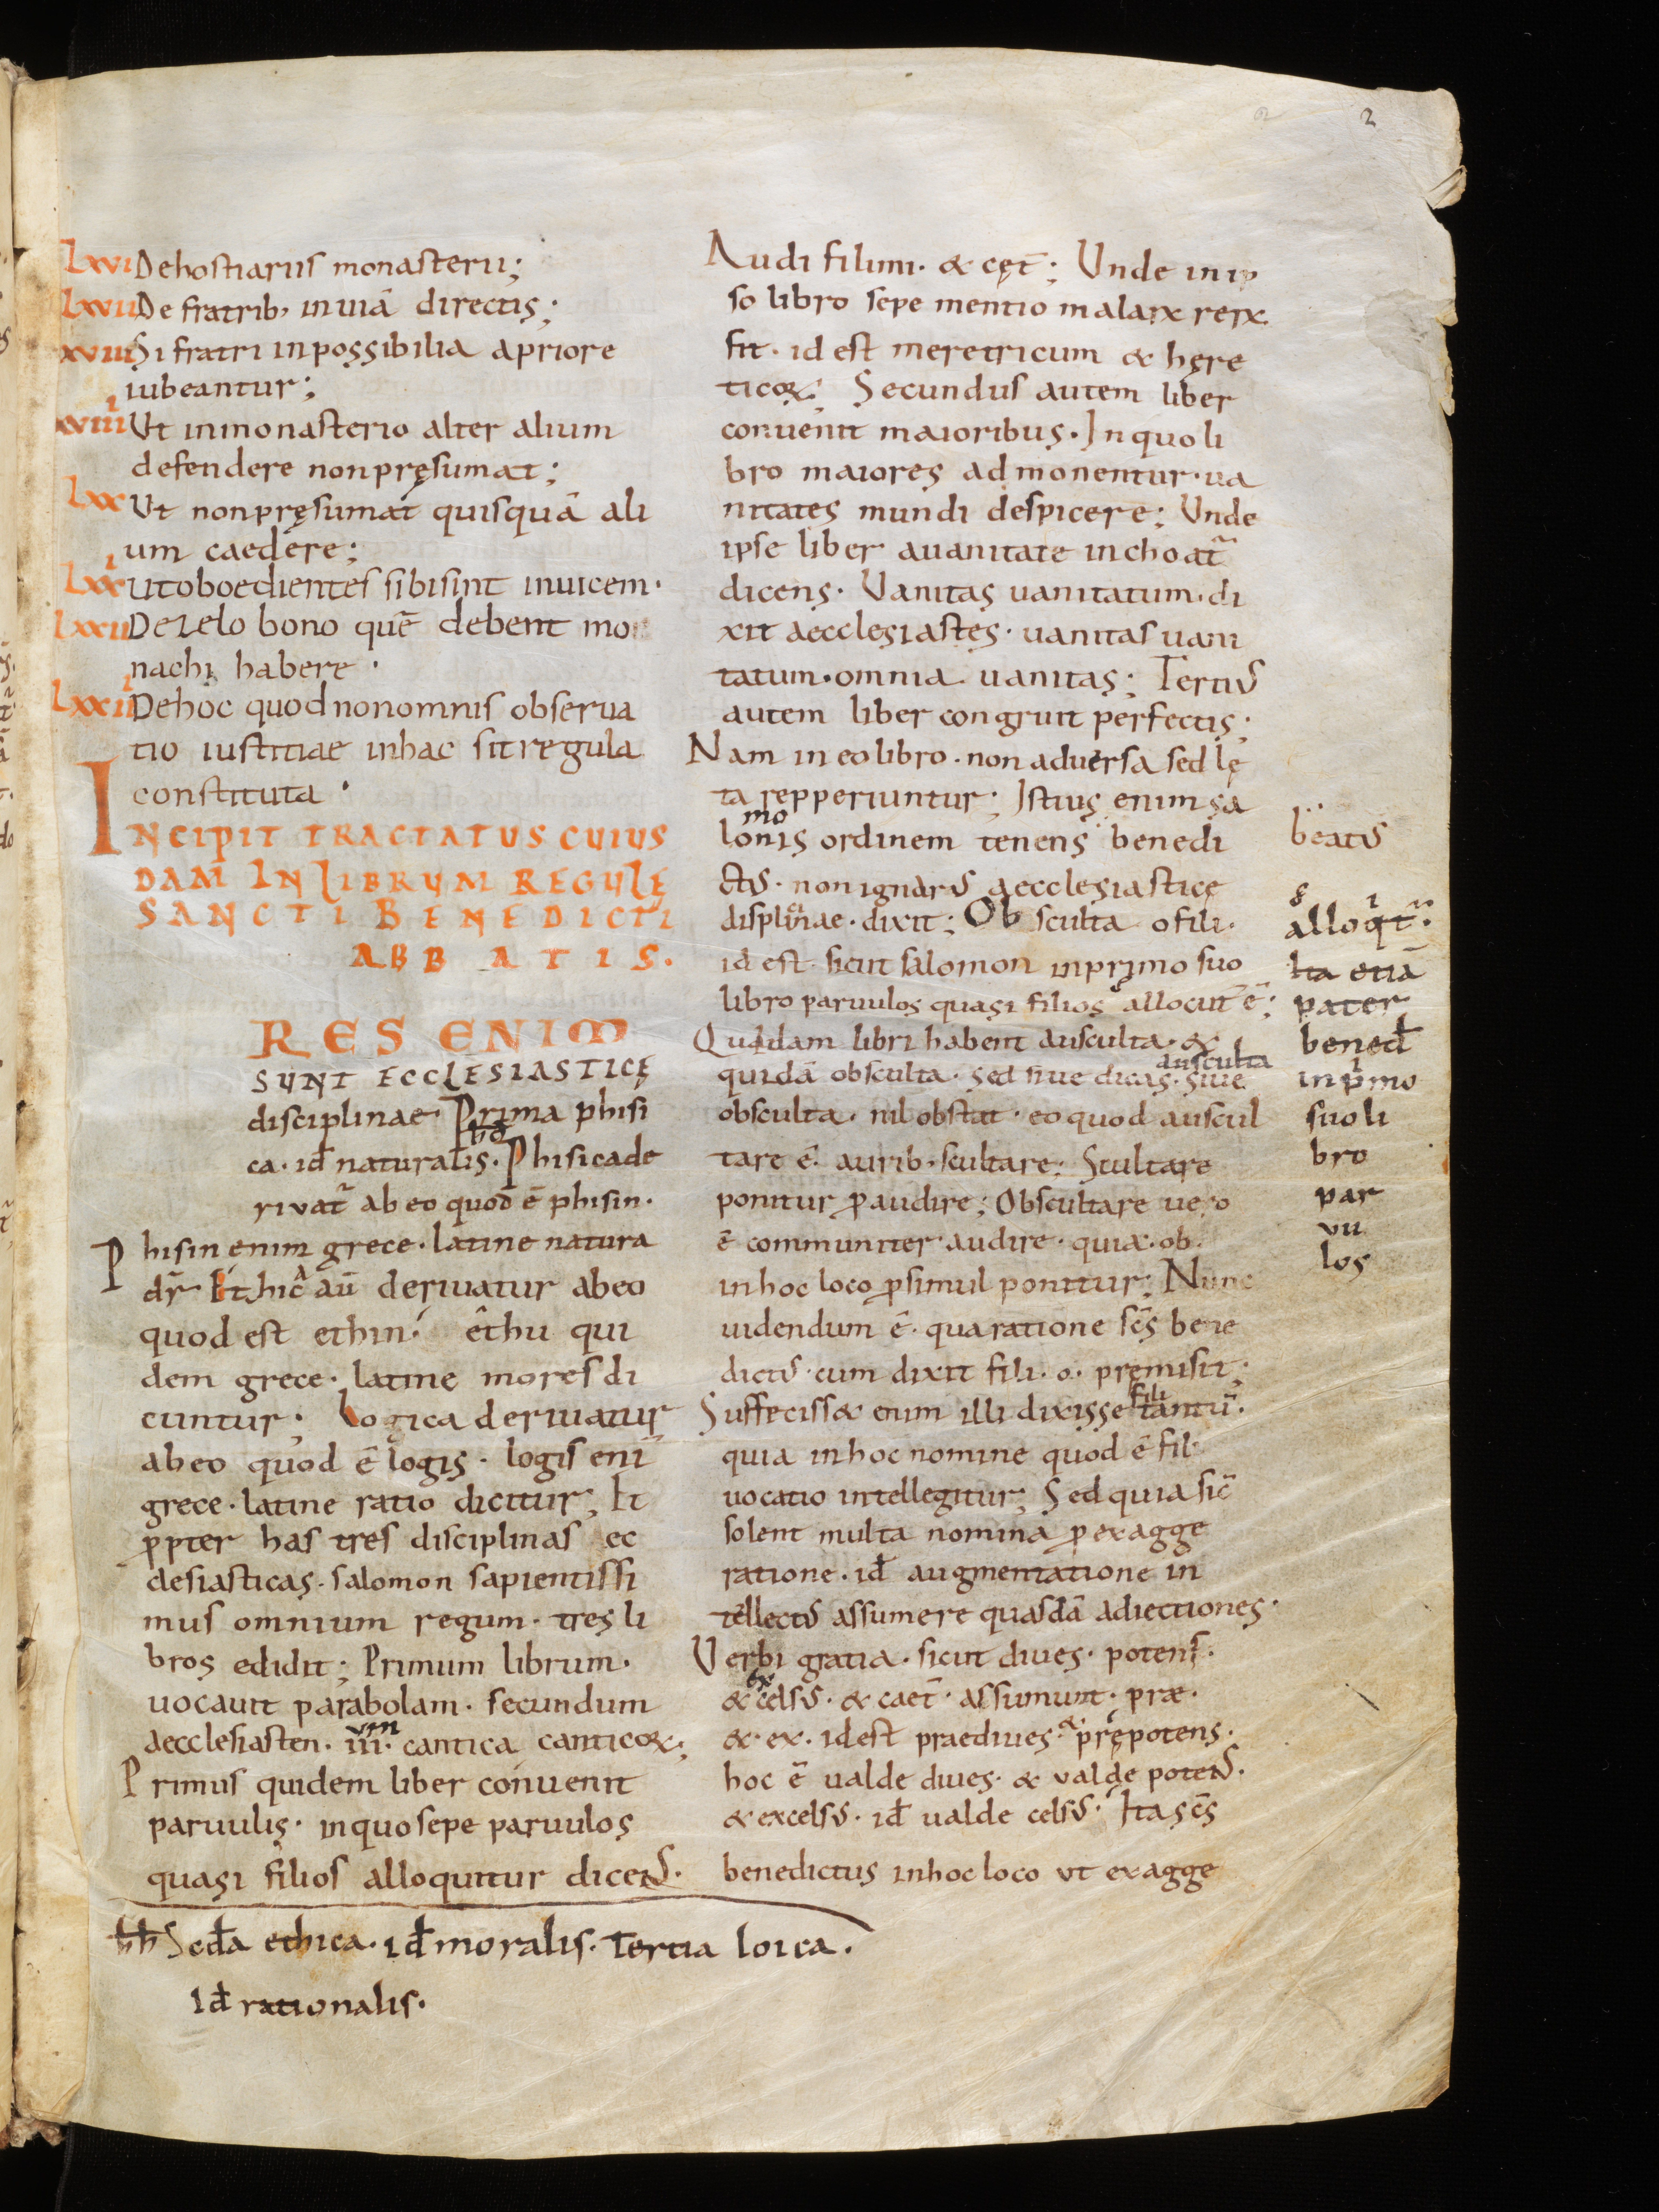 2
Lxvi De hostiariis monasterii;
Lxvii De fratrib; in uiā directis;
xviii Si fratri inpossibilia a priore
iubeantur;
xviiii Vt in monasterio alter alium
defendere non pręsumat;
Lxx Vt non pręsumat quisquā ali
um caedere;
Lxxi Ut oboedientes sibi sint inuicem·
Lxxii De zelo bono quē debent mo
nachi habere·
Lxxiii De hoc quod non omnis obserua
tio iustitiae in hac sit regula
constituta·
INCIPIT TRACTATUS CUIUS
DAM IN LIBRUM REGULĘ
SANCTI BENEDICTI
ABBATIS.
RES ENIM
SUNT ECCLESIASTICĘ
disciplinae· Prima phisi
ca· id̄ naturalis· hd Phisica de
rivat̄ ab eo quod ē phisin·
Phisin enim grece· latine natura
dr̄· Ethica aū deriuatur ab eo
quod est ethin· êthu qui
dem grece· latine mores di
cuntur; Logica deriuatur
ab eo quod ē logis· logis eni
grece· latine ratio dicitur; Et
ꝓpter has tres disciplinas ec
clesiasticas· salomon sapientissi
mus omnium regum· tres li
bros edidit; Primum librum·
uocauit parabolam· secundum
aecclesiasten· iii·um cantica canticoꝝ;
Primus quidem liber conuenit
paruulis· in quo sepe paruulos
quasi filios alloquitur dicens·
hh Secd̄a ethica· id̄ moralis· Tertia loica·
id̄ rationalis·
Audi fili mi· & cęt̄; Unde in ip
so libro sepe mentio malaꝝ reꝝ
fit· id est meretricum & hęre
ticoꝝ; Secundus autem liber
conuenit maioribus· In quo li
bro maiores admonentur· ua
nitates mundi despicere; Unde
ipse liber a uanitate inchoat̄
dicens· Vanitas uanitatum· di
xit aecclesiastes· uanitas uani
tatum· omnia uanitas; Tertius
autem liber congruit perfectis;
Nam in eo libro· non aduersa sed lę
ta repperiuntur; Istius enim sa
lomonis ordinem tenens benedi
ctus· non ignarus aecclesiasticę
disciplinae· dixit; Obsculta o fili·
id est· sicut salomon in primo suo
libro paruulos quasi filios allocut' ē;
Quidam libri habent ausculta· &
quidā obsculta· sed siue dicas· ausculta siue
obsculta· nil obstat· eo quod auscul
tare ē· aurib; scultare; Scultare
ponitur ꝓ audire; Obscultare uero
ē communiter audire· quia· ob·
in hoc loco ꝓ simul ponitur; Nunc
uidendum ē· qua ratione sc̄s bene
dictus· cum dixit fili· o· premisit;
Suffecisset enim illi dixisse fili tantū·
quia in hoc nomine quod ē fili
uocatio intellegitur; Sed quia sic̄
solent multa nomina ꝓ exagge
ratione· id̄ augmentatione in
tellectus assumere quasdā adiectiones·
Verbi gratia· sicut diues· potens·
& excelsus· & caet̄· assumunt· præ·
& ex· id est praediues· & prępotens·
hoc ē ualde diues· & valde potens·
& excelsus· id̄ ualde celsus· Ita sc̄s
benedictus in hoc loco vt exagge
beatus
alloqt̄
ita etiā
pater
bened̄
in pimo
suo li
bro
par
vu
los